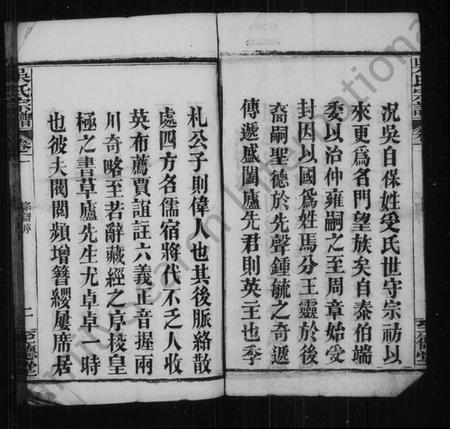 況吳自保姓受氏世守宗祊以
來更爲名門望族矣自泰伯端
委以治仲雍嗣之至周章始受
封因以國爲姓馬分王靈於後
裔嗣聖德於先聲鍾毓之奇遞
傳遞盛闔廬先君則英王也季
札公子則偉人也其後脈絡散
處四方名儒宿將代不乏人收
英布薦賈誼註六義正音握兩
川奇略至若辭藏經之序校皇
極之書草廬先生尤卓卓一時
也彼夫閥閱蘋增簪纓屢席居
吳氏宗譜 卷一 二 至德堂